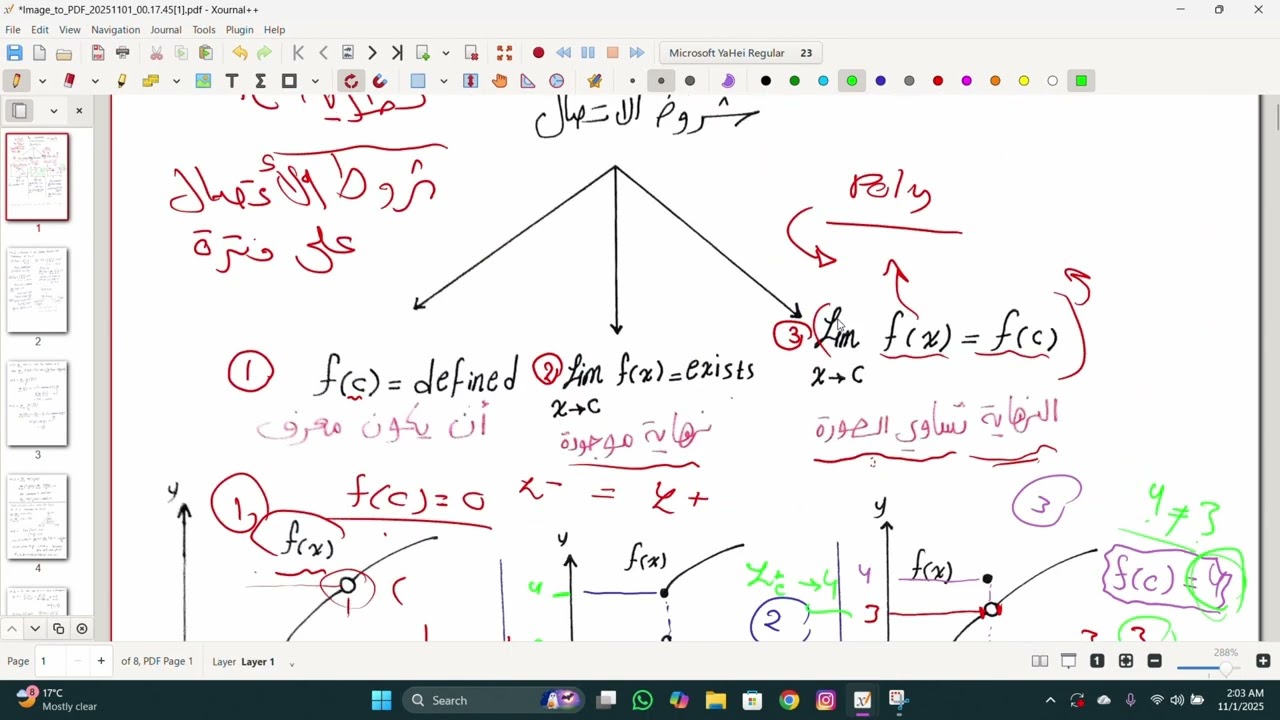 *Image_to_PDF_20251101_00.17.45[1].pdf - Xournal++
File Edit View Navigation Journal Tools Plugin Help
Microsoft YaHei Regular 23
شروط الاتصال
شروط الاتصال
على فترة
Poly
1 f(c) = defined
أن يكون معرف
2 Lim f(x) = exists
x→c
نهاية موجودة
3 Lim f(x) = f(c)
x→c
النهاية تساوي الصورة
1 f(c) = 0
L- = L+
3
4 ≠ 3
y
f(x)
y
f(x)
4
2
y
f(x)
4
3
f(c) = 4
1
2
3
4
Page 1 of 8, PDF Page 1 Layer Layer 1
288%
8
17°C
Mostly clear
Search
2:03 AM
11/1/2025